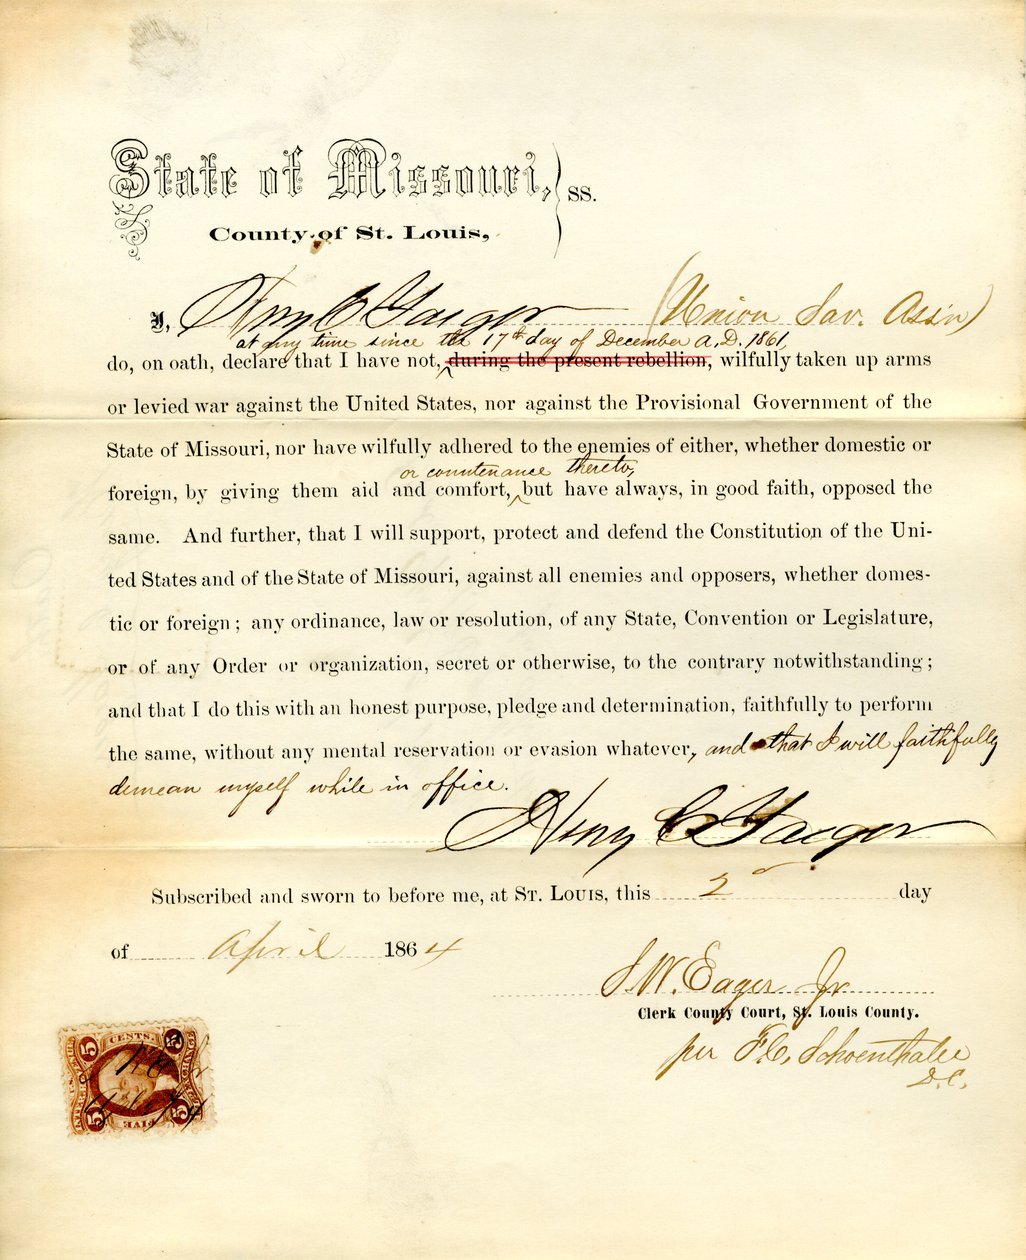 State of Missouri, } ss.
County of St. Louis,
I, Henry C Yaeger (Union Sav. Ass'n)
at any time since the 17th day of December A.D. 1861,
do, on oath, declare that I have not, during the present rebellion, wilfully taken up arms
or levied war against the United States, nor against the Provisional Government of the
State of Missouri, nor have wilfully adhered to the enemies of either, whether domestic or
or countenance thereto,
foreign, by giving them aid and comfort, but have always, in good faith, opposed the
same. And further, that I will support, protect and defend the Constitution of the Uni-
ted States and of the State of Missouri, against all enemies and opposers, whether domes-
tic or foreign; any ordinance, law or resolution, of any State, Convention or Legislature,
or of any Order or organization, secret or otherwise, to the contrary notwithstanding;
and that I do this with an honest purpose, pledge and determination, faithfully to perform
the same, without any mental reservation or evasion whatever, and that I will faithfully
demean myself while in office.
Henry C Yaeger
Subscribed and sworn to before me, at St. Louis, this 2d day
of April 1864
S.W. Eager Jr
Clerk County Court, St. Louis County.
per F.C. Schoenthaler
D.C.
5 CENTS. 5
INTER. REV. EXCHANGE
5 FIVE 5